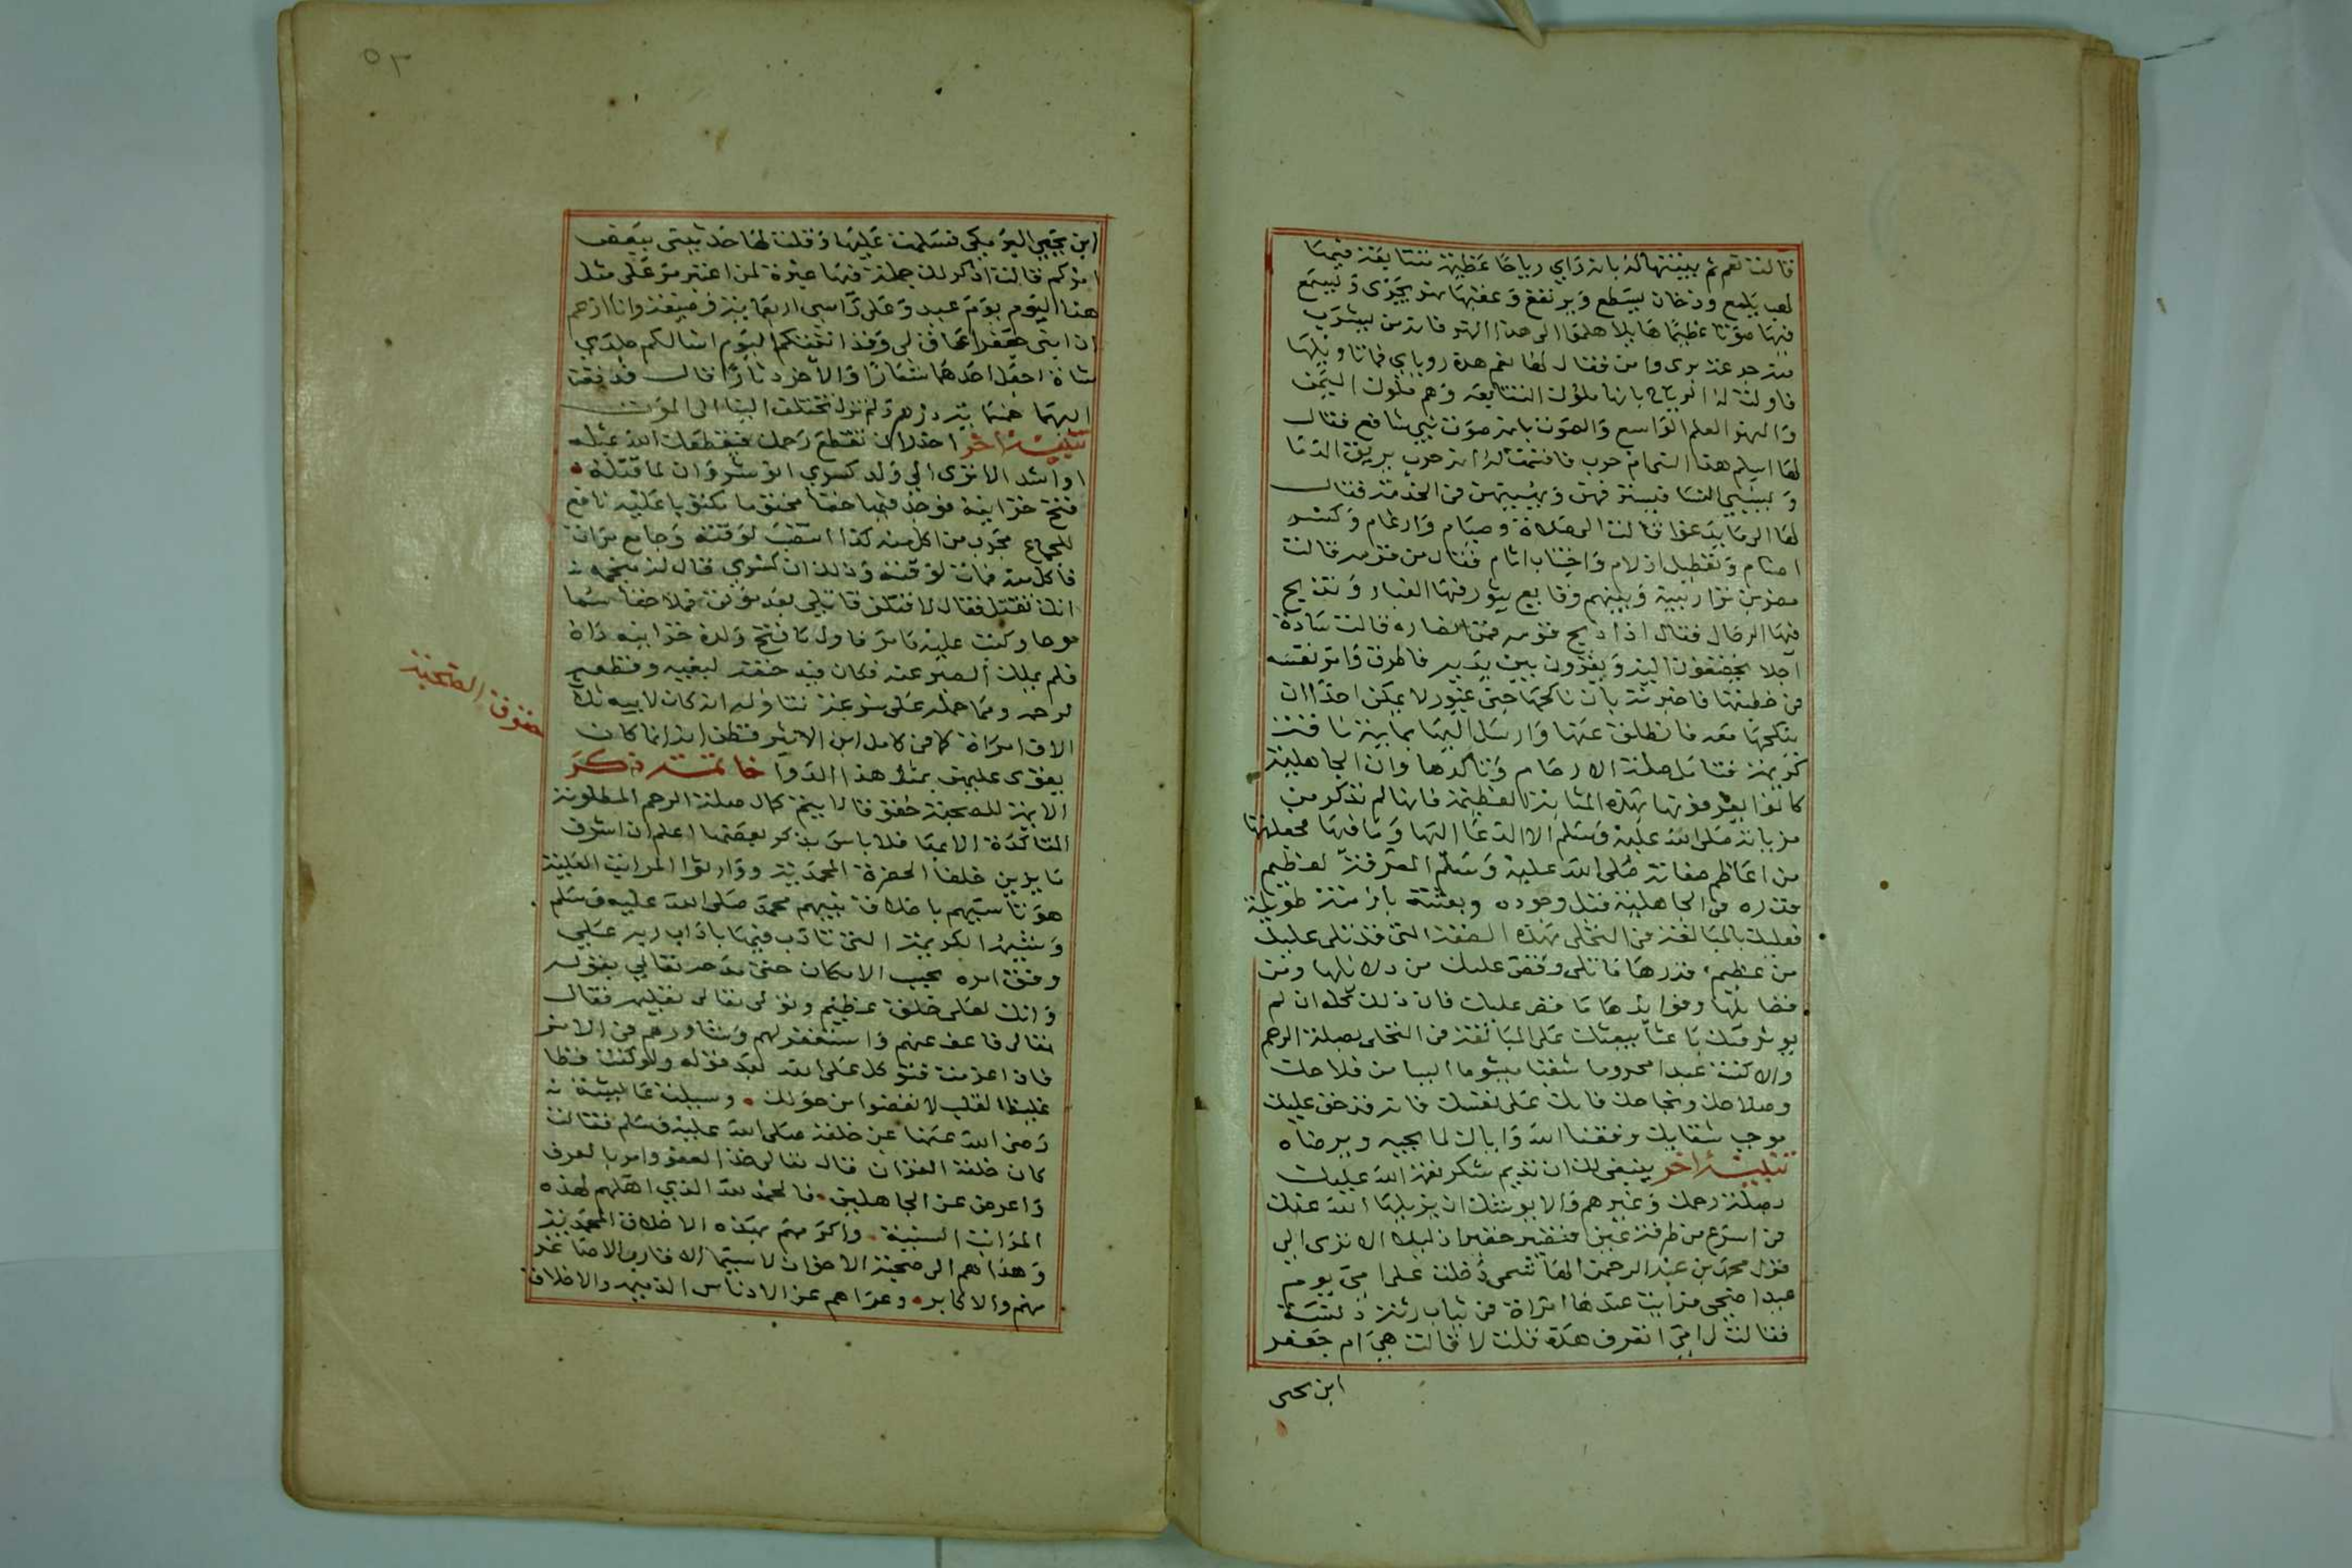 قالت نعم ثم بينتها له بانه راي رياحا عظيمة متتابعة فيها
لهب يلمع ودخان يسطع ويرتفع وعقبها نهر يجري وتسمع
فيها صوتا عظيما هايلا هلموا الى هذا النهر فانه من يشرب
منه جرعة يروى فقال لها نعم هذه روياي فما تاويلها
فاولت له الرياح بانها ملوك التتابعة وهم ملوك اليمن
والنهر العلم الواسع والصوت بانه صوت نبي شافع فقال
لها اسلم هذا النبي ام حرب فاقسمت له انه حرب يريق الدما
ويسبي النسا فقال
لها الى ما يدعوا قالت الى صلاة وصيام وارحام وكسر
اصنام وتعطيل ازلام واجتناب اثام فقال من قومه قالت
مضر بن نزار وبينهم وقايع يثور فيها الغبار وتذبح
فيها الرجال فقال اذا ذبح قومه فمن انصاره قالت سادة
اجلا يخضعون اليه ويغزون بين يديه فاطرق وامر نفسه
في خطبتها فاخبرته بان ناكحها جني غيور لا يمكن احدا ان
ينكحها معه فانطلق عنها وارسل اليها بماية ناقة
كريمة فتامل صلة الارحام وتاكدها وان الجاهلية
كانوا يعرفونها بهذه المثابة العظيمة فانها لم تذكر من
مزياته صلى الله عليه وسلم الا الدعا اليها وما فيها فجعلتها
من اعاظم صفاته صلى الله عليه وسلم المعرفة لعظيم
قدره في الجاهلية قبل وجوده وبعثته بازمنة طويلة
فعليك بالمبالغة في التحلي بهذه الصفة التي قد تلي عليك
من عظيم قدرها ما تلى وقص عليك من دلائلها ومن
فضايلها وفوايدها ما قص عليك فان ذلك كله ان لم
يورثك باعثا يبعثك على المبالغة في التحلي بصلة الرحم
والا كنت عبدا محروما شقيا ميشوما ايسا من فلاحك
وصلاحك ونجاحك فابك على نفسك فانه قد حق عليك
موجب شقايك وفقنا الله واياك لما يحبه ويرضاه
تنبيه اخر ينبغي لك ان تديم شكر نعمة الله عليك
بصلة رحمك وغيرهم والا يوشك ان يزيلها الله عنك
في اسرع من طرفة عين فتصير حقيرا ذليلا الا ترى الى
قول محمد بن عبد الرحمن الهاشمي دخلت على امي يوم
عيد اضحى فرايت عندها امراة في ثياب رثة دنسة
فقالت لي امي اتعرف هذه قلت لا قالت هي ام جعفر
ابن يحيى
٥٣
ابن يحيى البرمكي فسلمت عليها وقلت لها حدثيني ببعض
امركم قالت اذكر لك جملة فيها عبرة لمن اعتبر مر علي مثل
هذا اليوم يوم عيد وعلى راسي اربعماية وصيفة وانا ازعم
ان ابني جعفرا عاق لي وقد اتيتكم اليوم اسالكم جلدي
شاة اجعل احدهما شعارا والاخر دثارا قال فدفعت
اليها خمسماية درهم ولم تزل تختلف الينا الى الموت
تنبيه اخر احذر ان تقطع رحمك فيقطعك الله بمثله
او اشد الا ترى الى ولد كسرى انو شروان لما قتله
فتح خزاينه فوجد فيها حقا مختوما مكتوبا عليه نافع
للجماع مجرب من اكل منه كذا انتصب لوقته وجامع مراة
فاكل منه فمات لوقته وذلك ان كسرى قال له منجمه
انك تقتل فقال لاقتلن قاتلي بعد موته فملا حقا سما
موحا وكتب عليه ما مر فاول ما فتح ولده خزاينه راه
فلم يملك الصبر عنه فكان فيه حتفه لبغيه وقطعه
لرحمه ومما حمله على سرعة تناوله انه كان لابيه ثلاثة
الاف امراة كما في كامل ابن الاثير فظن انه انما كان
يقوى عليهن بمثل هذا الدوا خاتمة ذكر
الايمة للصحبة حقوقا لا يتم كمال صلة الرحم المطلوبة
المتاكدة الا بها فلا باس بذكر بعضها اعلم ان اشرف
ما يزين خلفا الحضرة المحمدية ووارثوا المراتب العلية
هو تاسيهم باخلاق نبيهم محمد صلى الله عليه وسلم
وشيمه الكريمة التي تادب فيها باداب ربه على
وفق امره بحسب الامكان حتى مدحه تعالى بقوله
وانك لعلى خلق عظيم وتولى تعالى تعليمه فقال
تعالى فاعف عنهم واستغفر لهم وشاورهم في الامر
فاذا عزمت فتوكل على الله بعد قوله ولو كنت فظا
غليظ القلب لانفضوا من حولك وسيلت عايشة
رضي الله عنها عن خلقه صلى الله عليه وسلم فقالت
كان خلقه القران قال تعالى خذ العفو وامر بالعرف
واعرض عن الجاهلين فالحمد لله الذي اهلهم لهذه
المراتب السنية واكرمهم بهذه الاخلاق المحمدية
وهداهم الى صحبة الاخوان لا سيما الاقارب الاصاغر
منهم والاكابر وعراهم عن الادناس الذميمه والاخلاق
حقوق الصحبة